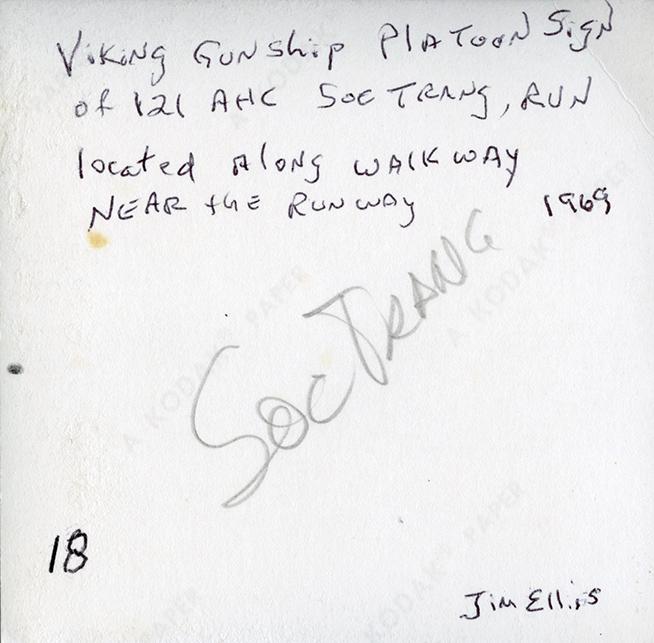 Viking Gunship Platoon Sign
of 121 AHC Soc Trang, RVN
located Along walkway
Near the Runway 1969
Soc Trang
18
Jim Ellis
A KODAK® PAPER
A KODAK® PAPER
A KODAK® PAPER